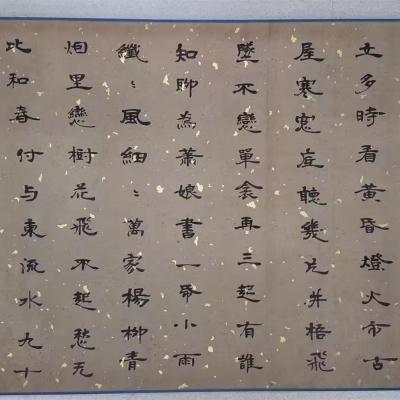 立多時看黃昏燈火市古
屋寒窓底聽幾片井梧飛
墜不戀單衾再三起有誰
知聊為蕭娘書一帋小雨
纖〻風細〻萬家楊柳青
烟里戀樹花飛不起愁无
比和春付与東流水九十